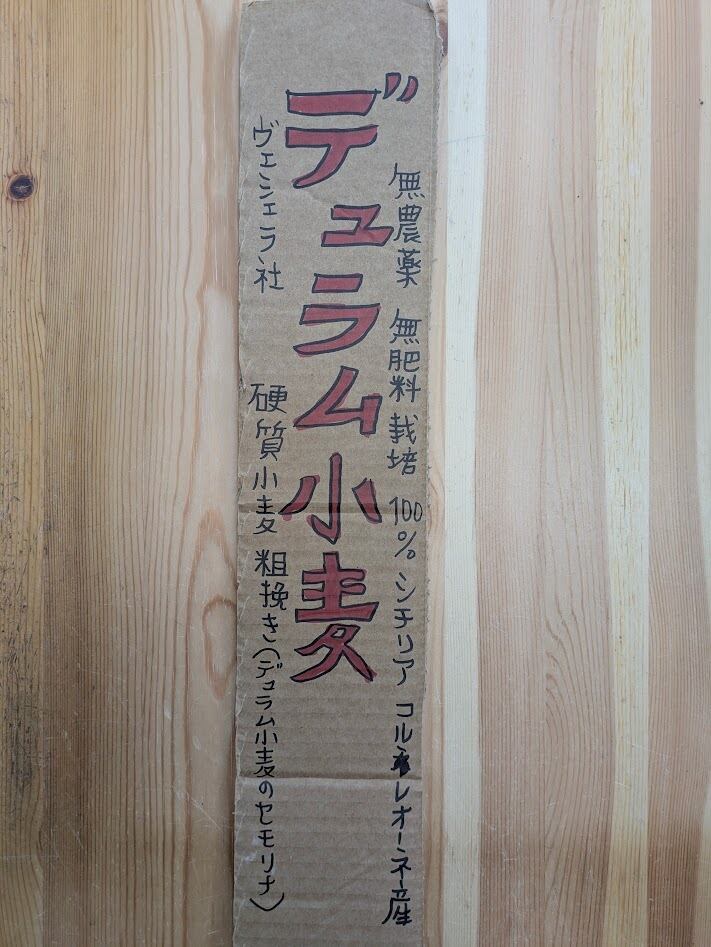 無農薬 無肥料 栽培 100% シチリア コルレオーネ産
デュラム小麦
ヴェシェラ社 硬質小麦 粗挽き(デュラム小麦のセモリナ)